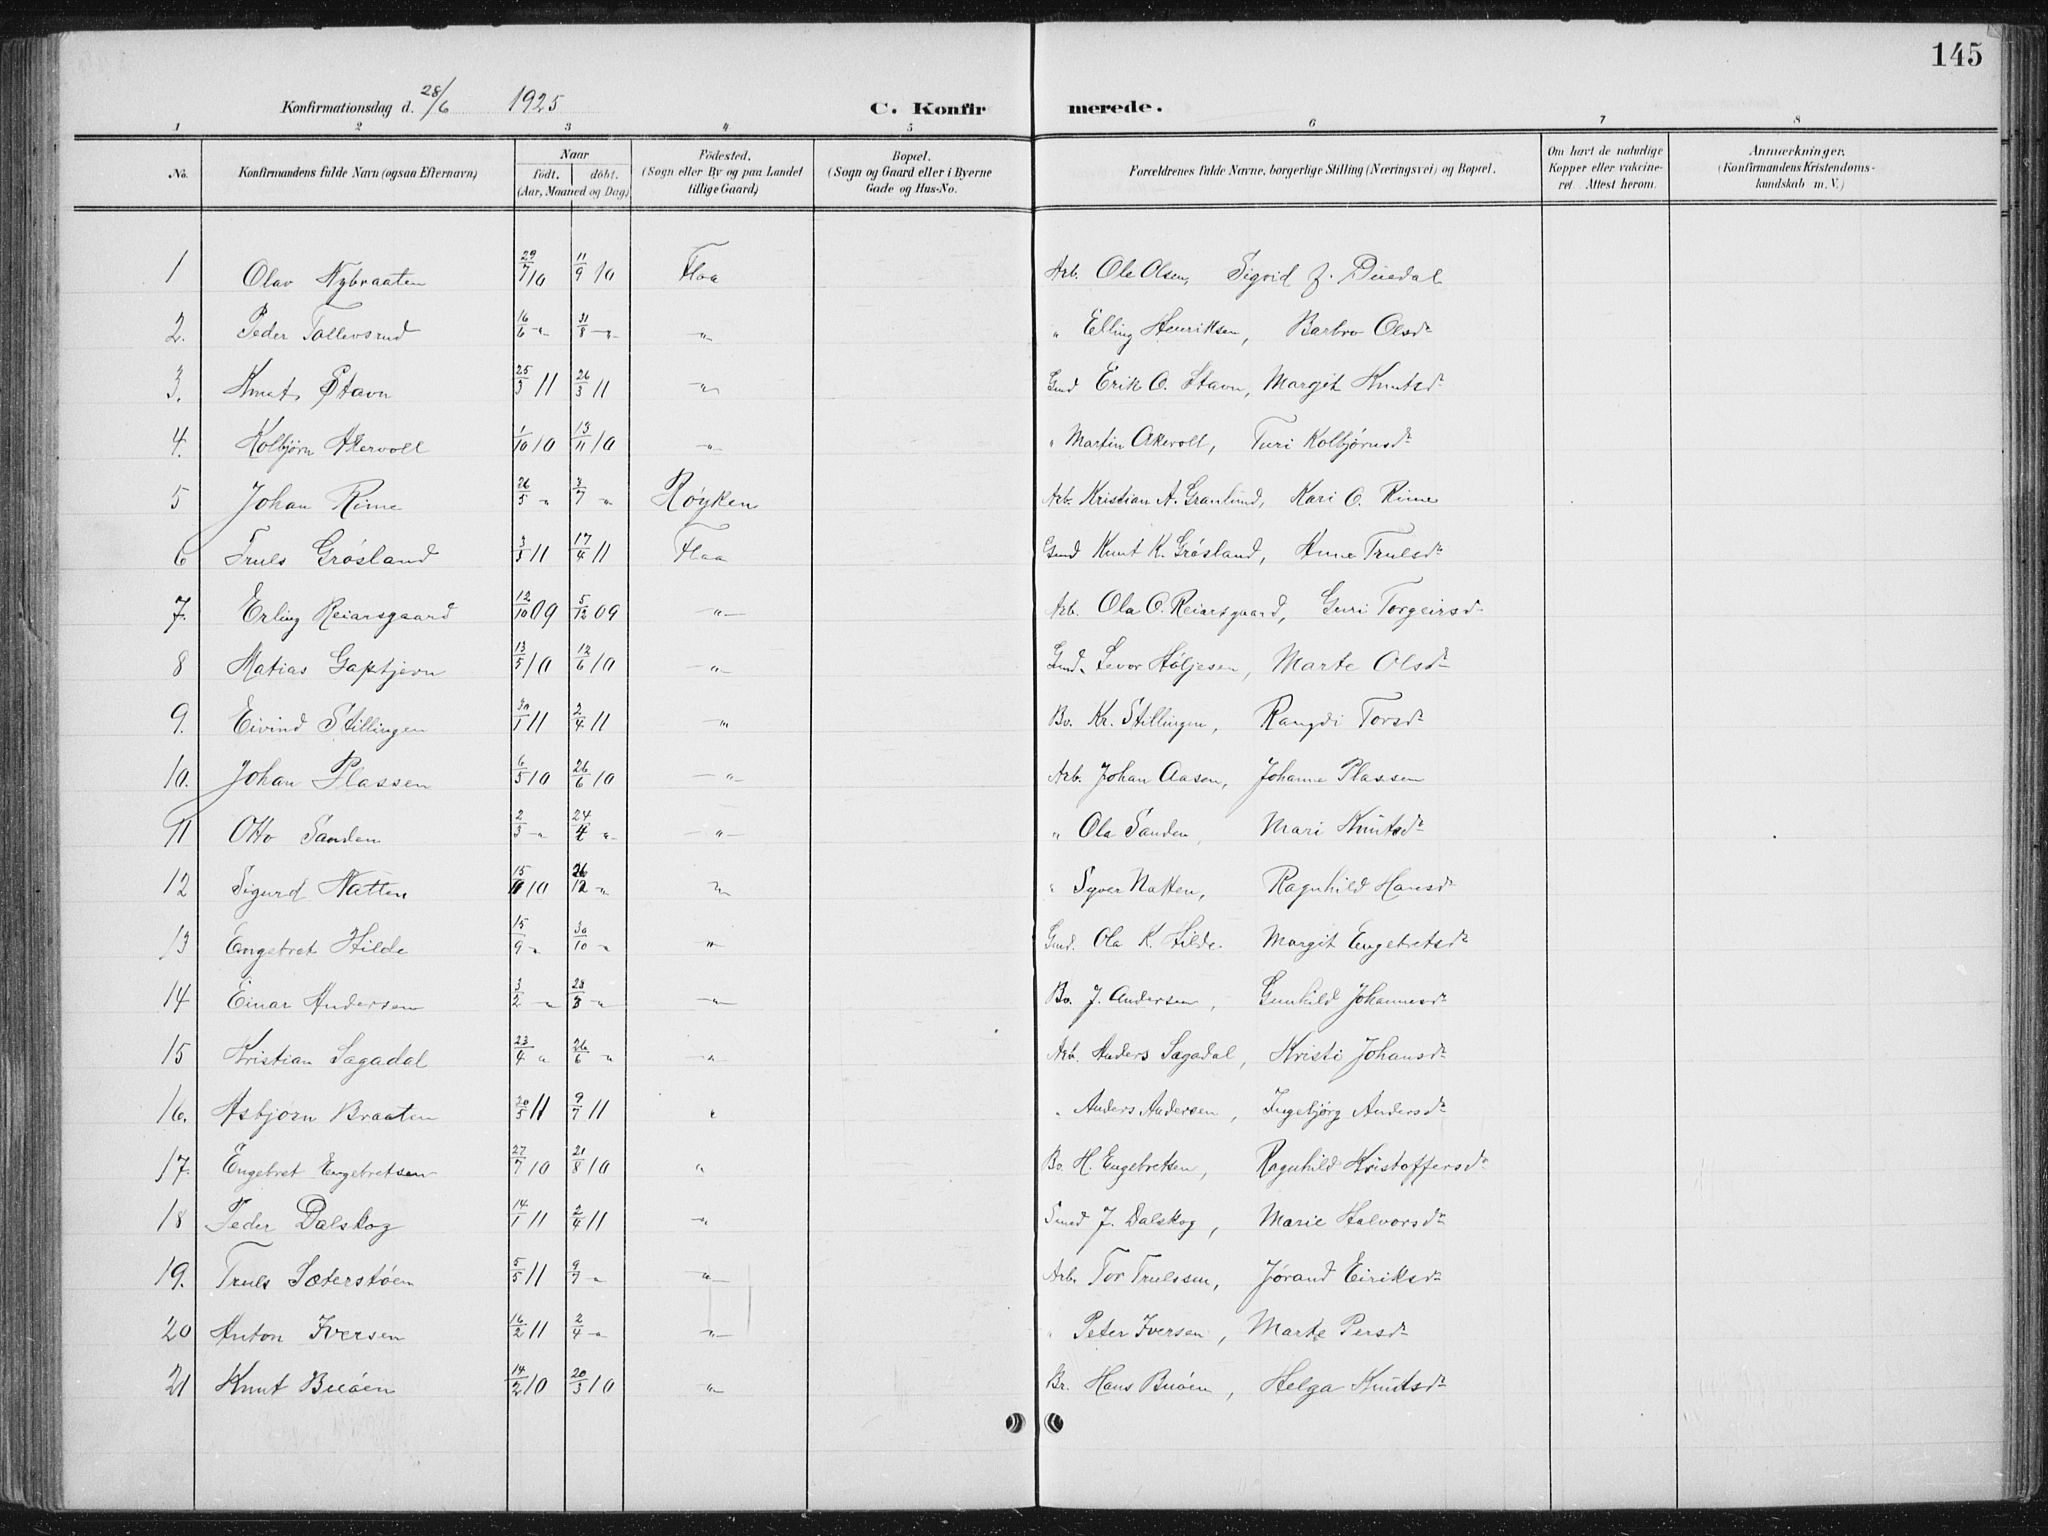 145
Konfirmationsdag d. 28/6 1925 C. Konfirmerede.
1 2 3 4 5 6 7 8
No. Konfirmandens fulde Navn (ogsaa Efternavn) Naar født. døbt. (Aar, Maaned og Dag) Fødested. (Sogn eller By og paa Landet tillige Gaard) Bopæl. (Sogn og Gaard eller i Byerne Gade og Hus-No. Forældrenes fulde Navne, borgerlige Stilling (Næringsvei) og Bopæl. Om havt de naturlige Kopper eller vakcineret. Attest herom. Anmærkninger. (Konfirmandens Kristendomskundskab m. V.)
1 Olav Nybraaten 29/7 10 11/9 10 Flaa Arb. Ole Olsen, Sigrid J. Buedal
2. Peder Tollevsrud 16/6 -"- 31/8 -"- -"- " Elling Henriksen, Barbro Olsdr
3. Knut Stavn 25/3 11 26/3 11 -"- Gmd Erik O. Stavn, Margit Knutsdr
4. Kolbjørn Akervoll 1/10 10 13/11 10 -"- " Martin Akervoll, Turi Kolbjørnsdr
5 Johan Rime 26/5 " 3/7 " Røyken Arb. Kristian A. Granlund, Kari O. Rime
6 Truls Grøsland 3/3 11 17/4 11 Flaa Gmd Knut K. Grøsland, Anne Trulsdr
7. Erling Reiarsgaard 12/10 09 5/12 09 -"- Arb. Ola O. Reiarsgaard, Guri Torgeirsdr
8 Matias Gaptjern 13/5 10 12/6 10 -"- Gmd. Levor Høljesen, Marte Olsdr
9. Eivind Stillingen 30/1 11 2/4 11 -"- Bv. Kr. Stillingen, Rangdi Torsdr
10. Johan Plassen 6/5 10 26/6 10 -"- Arb. Johan Aasen, Johanne Plassen
11 Otto Sanden 2/3 -"- 24/4 " -"- " Ola Sanden, Mari Knutsdr
12 Sigurd Natten 15/11 10 26/12 -"- -"- " Syver Natten, Ragnhild Hansdr
13 Engebret Hilde 15/9 -"- 30/10 -"- -"- Gmd. Ola K. Hilde. Margit Engebretsdr
14 Einar Andersen 3/2 -"- 28/3 -"- -"- Bv. J. Andersen, Gunhild Johannesdr
15 Kristian Sagadal 23/4 " 26/6 -"- -"- Arb. Anders Sagadal, Kristi Johansdr
16. Asbjørn Braaten 20/5 11 9/7 11 " " Anders Andersen, Ingebjørg Andersdr
17. Engebret Engebretsen 27/7 10 21/8 10 " Bv. H. Engebretsen, Ragnhild Kristoffersdr
18 Peder Dalskog 14/1 11 2/4 11 -"- Smed J. Dalskog, Marie Halvorsdr
19. Truls Sæterstøen 5/5 11 9/7 -"- -"- Arb. Tor Trulssen, Jørand Eiriksdr
20 Anton Iversen 16/2 11 2/4 -"- -"- " Peter Iversen, Marte Persdr
21 Knut Buøen 14/2 10 20/3 10 -"- Br. Hans Buøen, Helga Knutsdr